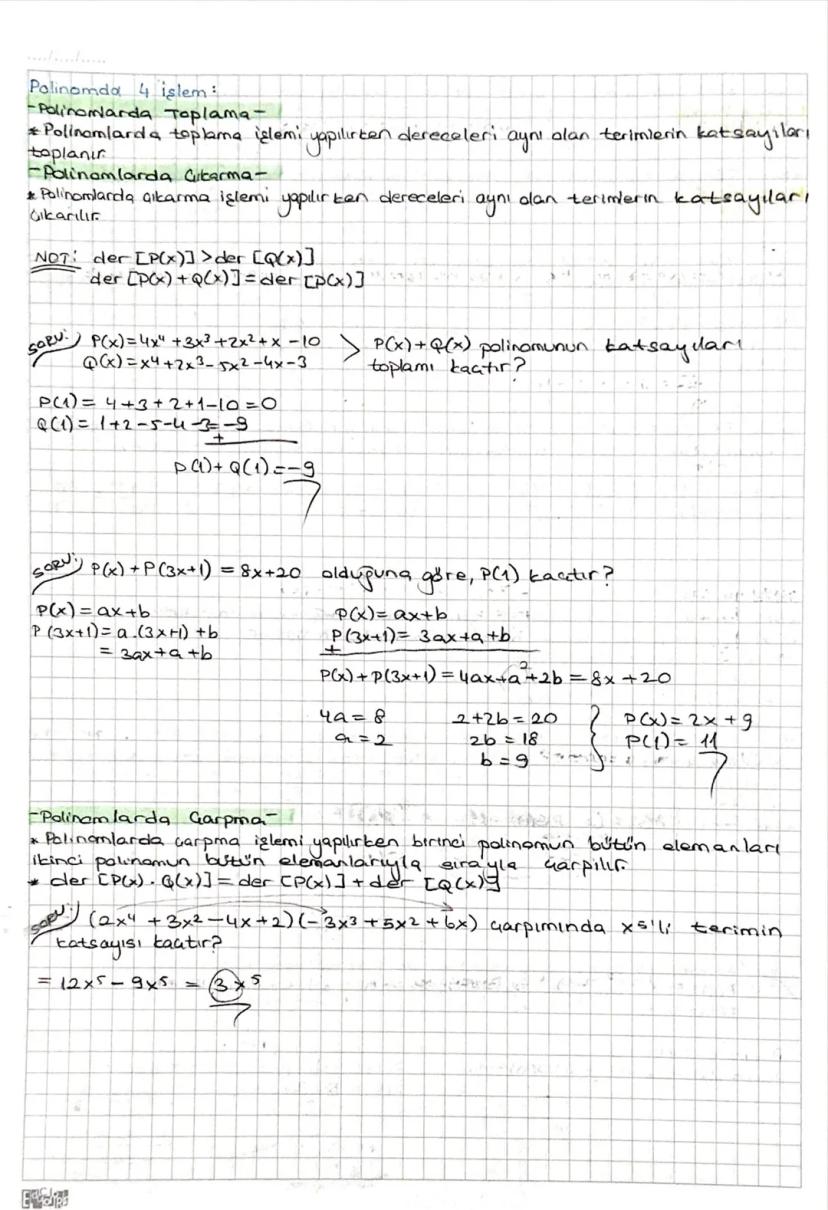 Polinomda 4 işlem:
-Polinomlarda Toplama-
* Polinomlarda toplama işlemi yapılırken dereceleri aynı olan terimlerin katsayıları
toplanır.
-Polinomlarda Çıkarma-
* Polinomlarda çıkarma işlemi yapılırken dereceleri aynı olan terimlerin katsayıları
çıkarılır.
NOT: der [P(x)] > der [Q(x)]
der [P(x) + Q(x)] = der [P(x)]
SORU: P(x) = 4x⁴ + 3x³ + 2x² + x - 10 > P(x) + Q(x) polinomunun katsayıları
Q(x) = x⁴ + 2x³ - 5x² - 4x - 3 toplamı kaçtır?
P(1) = 4+3+2+1-10 = 0
Q(1) = 1+2-5-4-3 = -9
+
P(1) + Q(1) = -9
SORU: P(x) + P(3x+1) = 8x+20 olduğuna göre, P(1) kaçtır?
P(x) = ax+b P(x) = ax+b
P(3x+1) = a.(3x+1)+b P(3x+1) = 3ax+a+b
= 3ax+a+b +
P(x) + P(3x+1) = 4ax+a²+2b = 8x+20
4a = 8 2+2b = 20 } P(x) = 2x+9
a = 2 2b = 18 P(1) = 11
b = 9
-Polinomlarda Çarpma-
* Polinomlarda çarpma işlemi yapılırken birinci polinomun bütün elemanları
ikinci polinomun bütün elemanlarıyla sırayla çarpılır.
* der [P(x) . Q(x)] = der [P(x)] + der [Q(x)]
SORU: (2x⁴ + 3x² - 4x + 2)(-3x³ + 5x² + 6x) çarpımında x⁵'li terimin
katsayısı kaçtır?
= 12x⁵ - 9x⁵ = 3x⁵